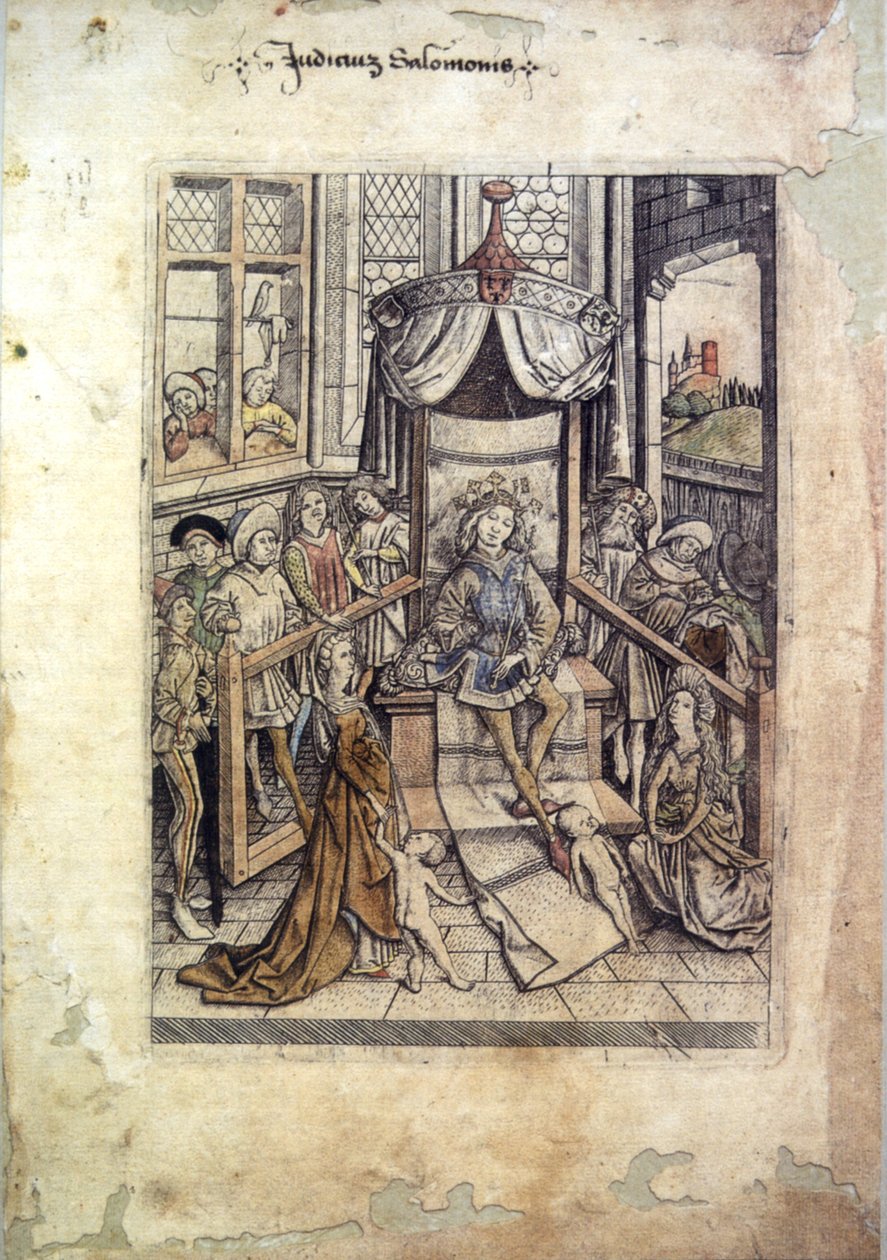 Judiciuz Salomonis